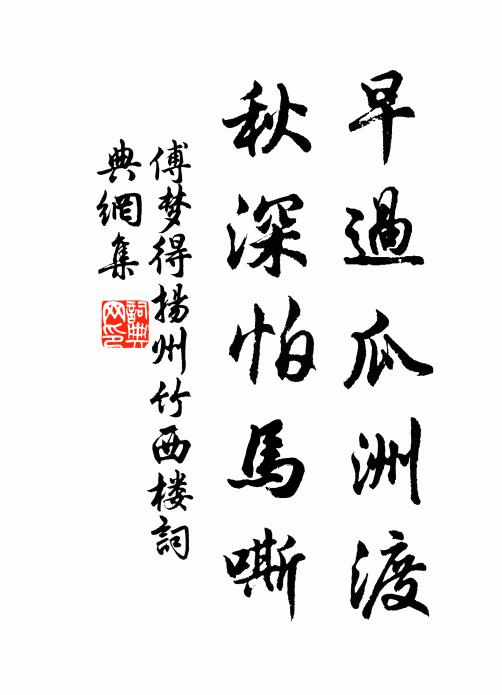 早過瓜洲渡
秋深怕馬嘶
傅梦得揚州竹西楼詞
典網集
詞典
网印